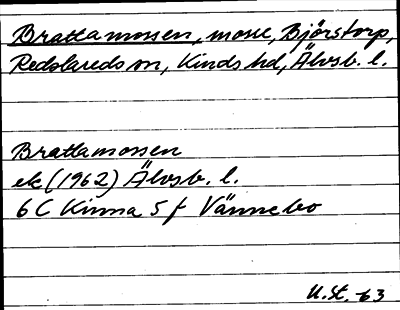 Brattamossen, mosse, Björstorp,
Redslareds sn, Kinds hd, Älvsb. l.
Brattamossen
ek (1962) Älvsb. l.
6 C Kinna 5 f Vännebo
U.St. -63